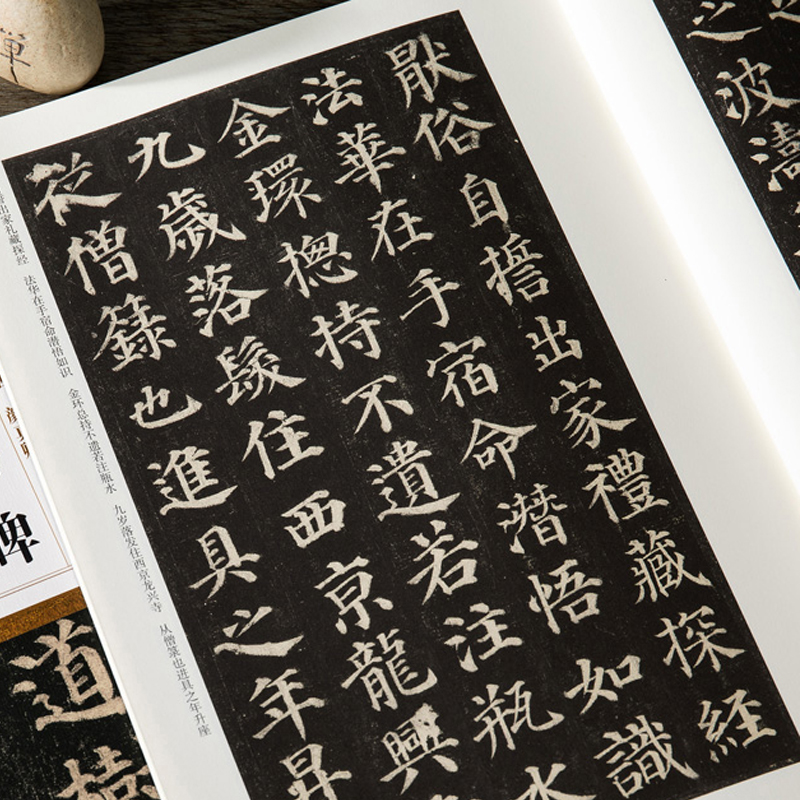 之
波
濤
猒俗自誓出家禮藏探經
法華在手宿命潛悟如識
金環揔持不遺若注瓶水
九歲落髮住西京龍興
從僧籙也進具之年昇
出家礼藏探经 法华在手宿命潜悟如识 金环总持不遗若注瓶水 九岁落发住西京龙兴寺 从僧箓也进具之年升座
碑
道